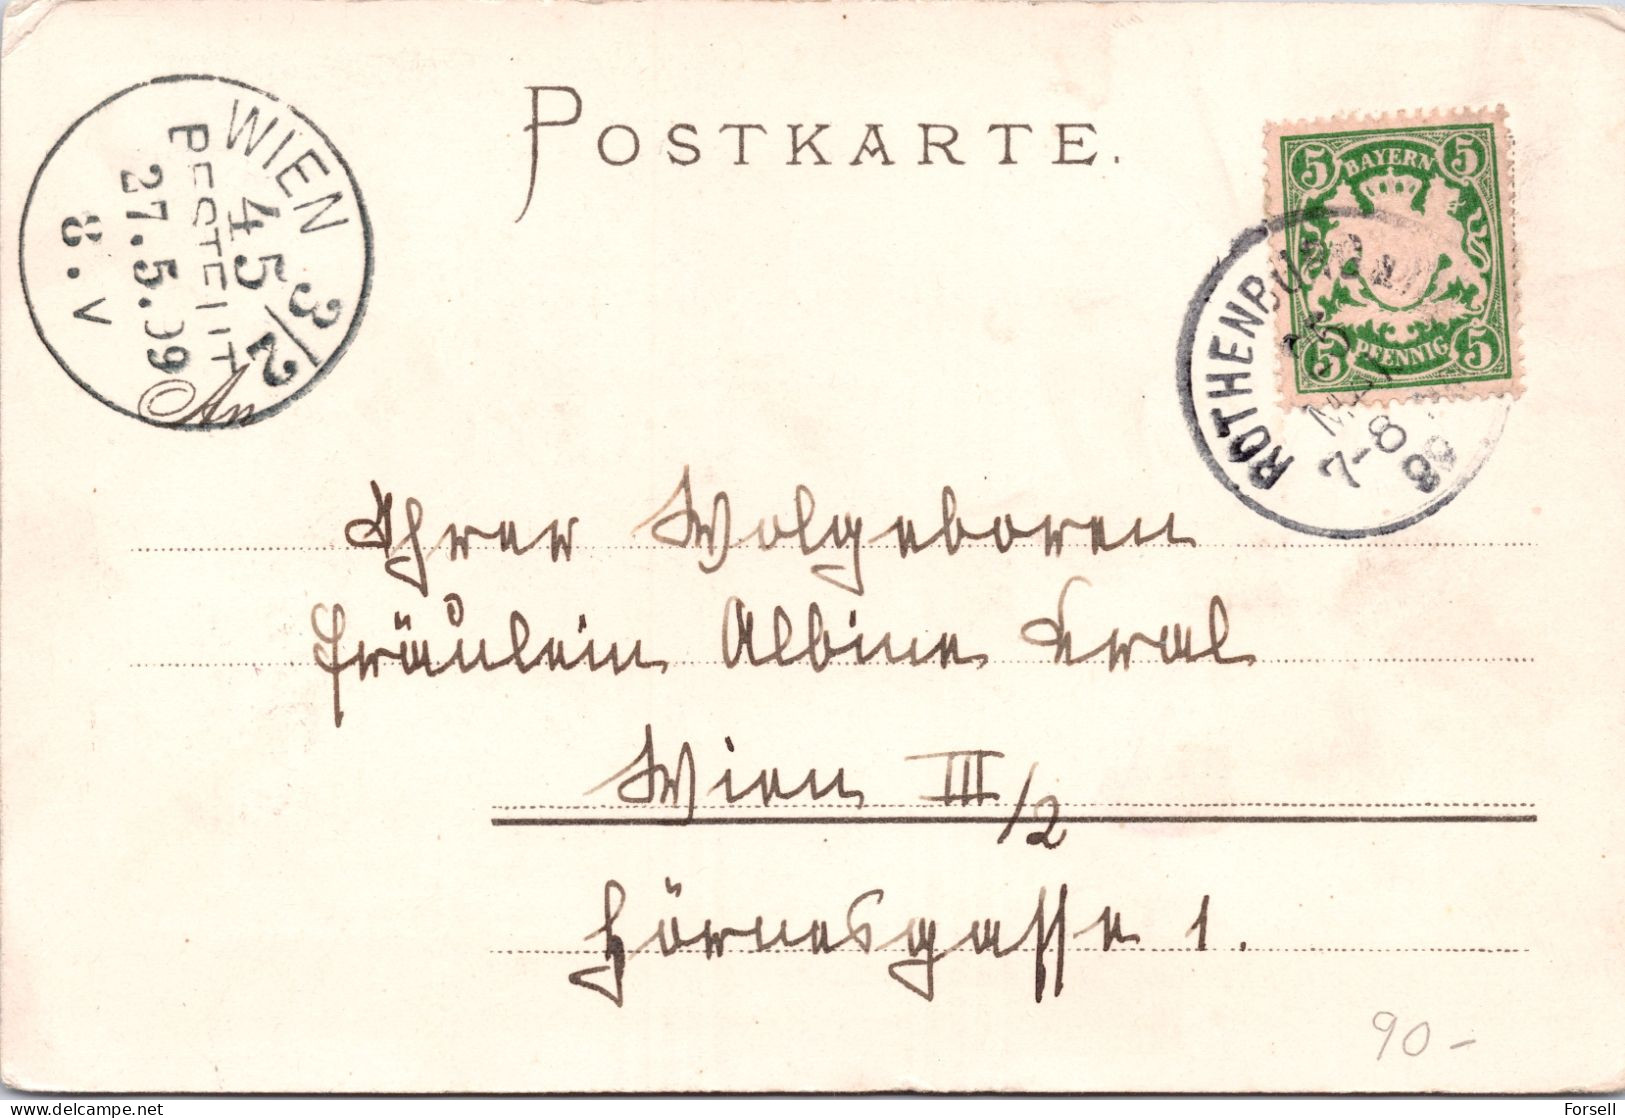 POSTKARTE.
WIEN 3/2
45
27.5.99
8.V
An
5 BAYERN 5
5 PFENNIG 5
ROTHENBURG
7-8
99
Ihrer Wolgeboren
Fräulein Albine Kral
Wien III/2
Hörnesgasse 1.
90-
Forsell
delcampe.net